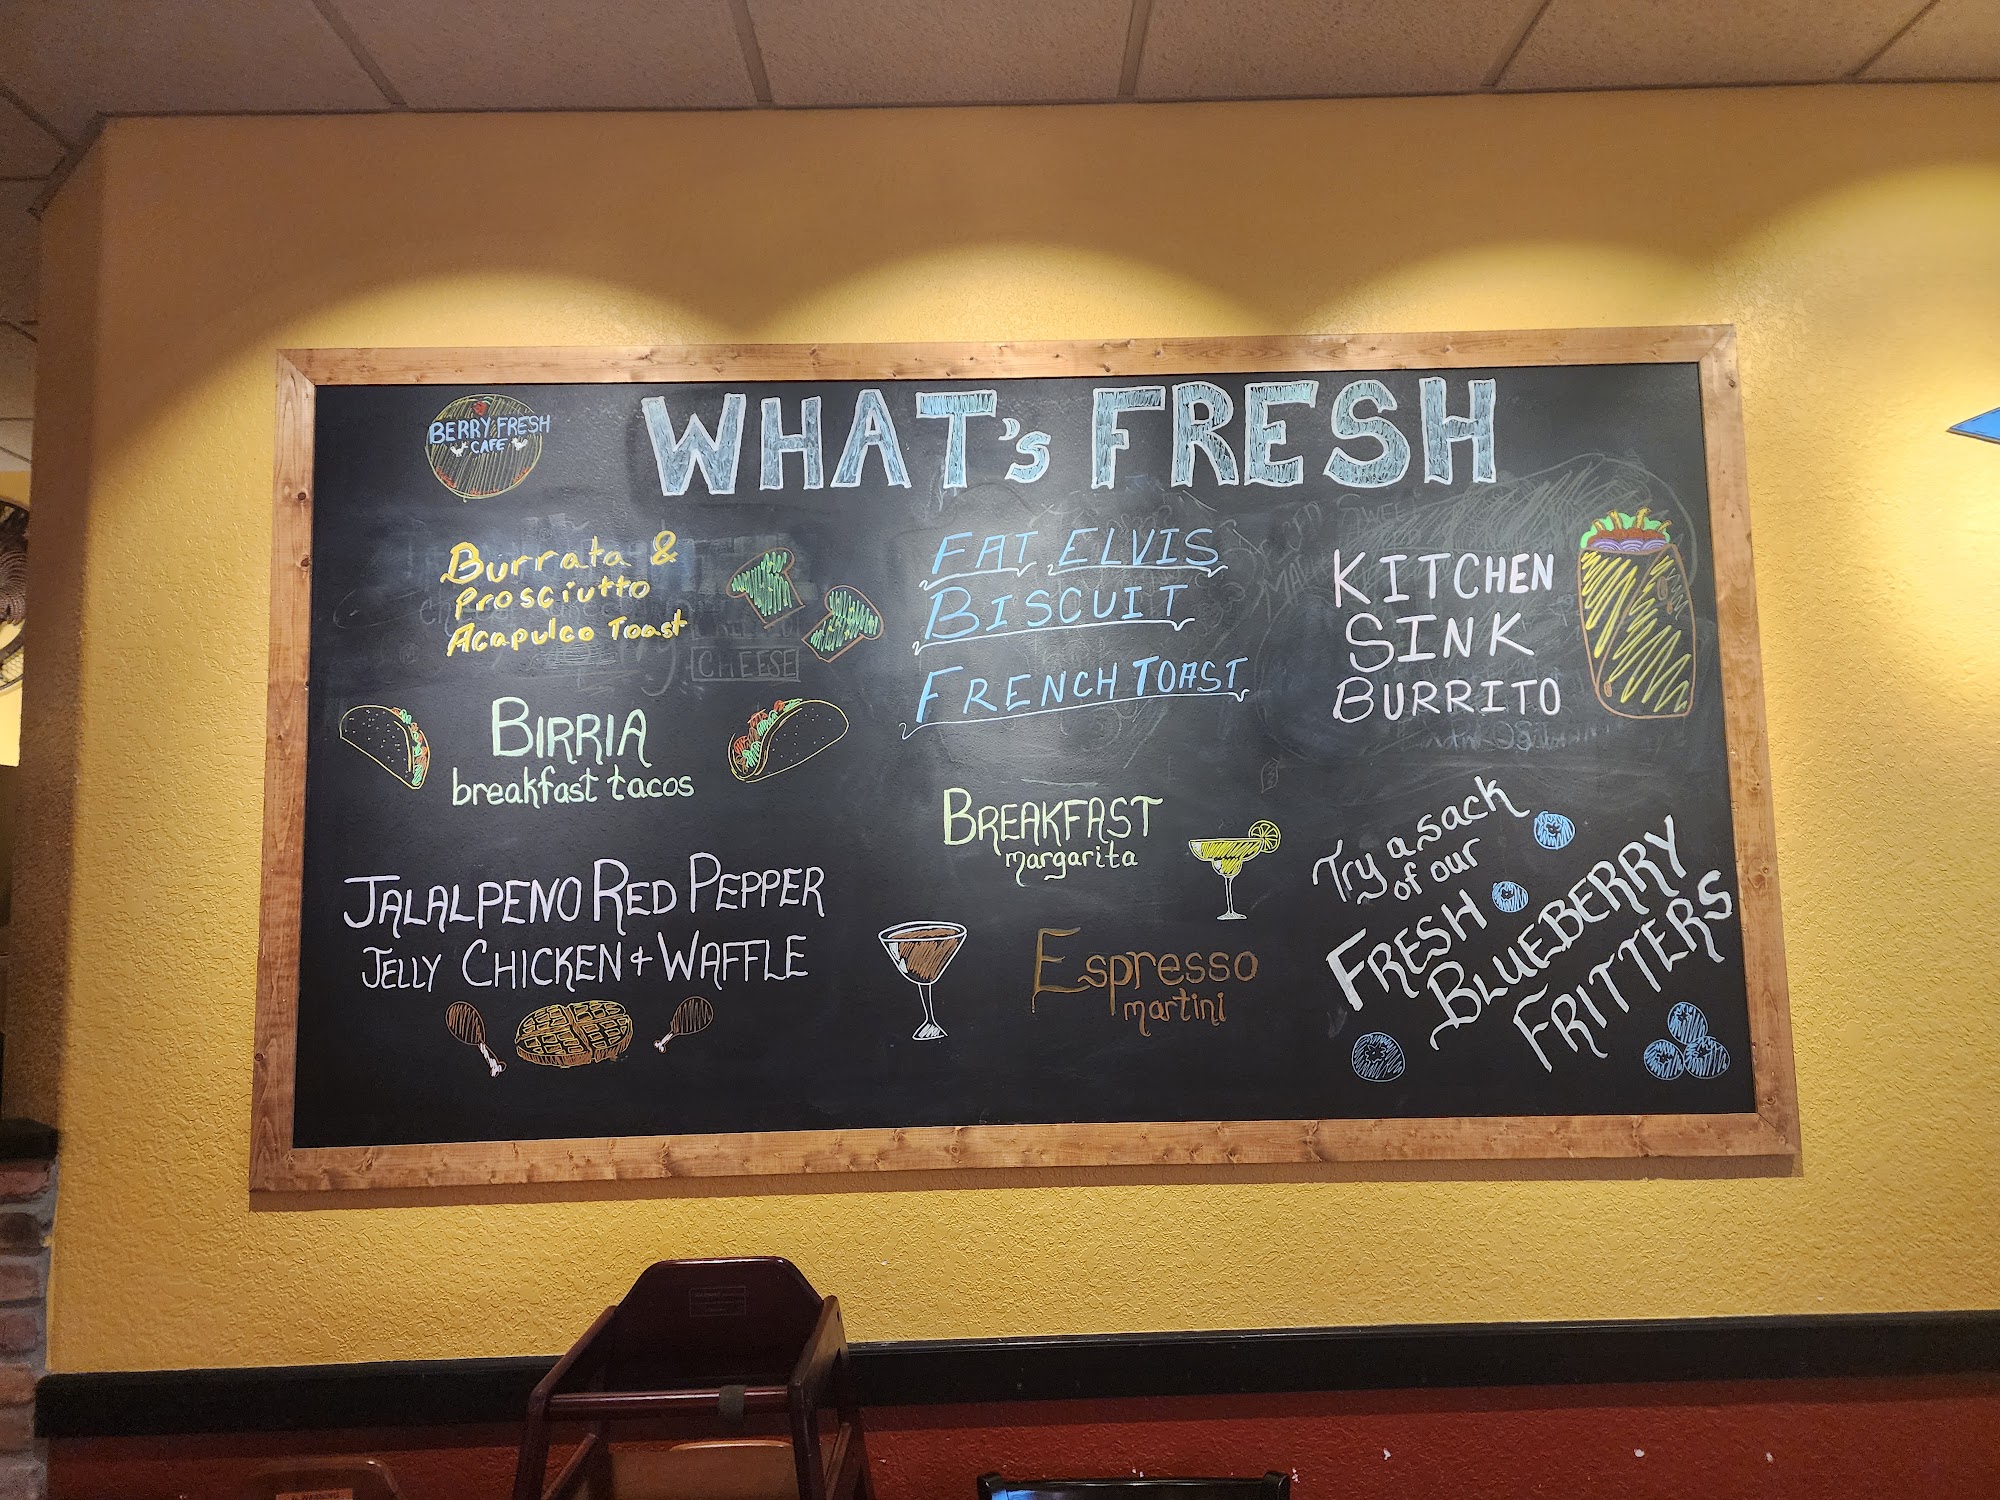 BERRY FRESH
CAFE
WHAT's FRESH
Burrata &
Prosciutto
Acapulco Toast
CHEESE
BIRRIA
breakfast tacos
JALALPENO RED PEPPER
JELLY CHICKEN + WAFFLE
FAT ELVIS
BISCUIT
FRENCH TOAST
BREAKFAST
margarita
Espresso
martini
KITCHEN
SINK
BURRITO
Try a sack
of our
FRESH
BLUEBERRY
FRITTERS